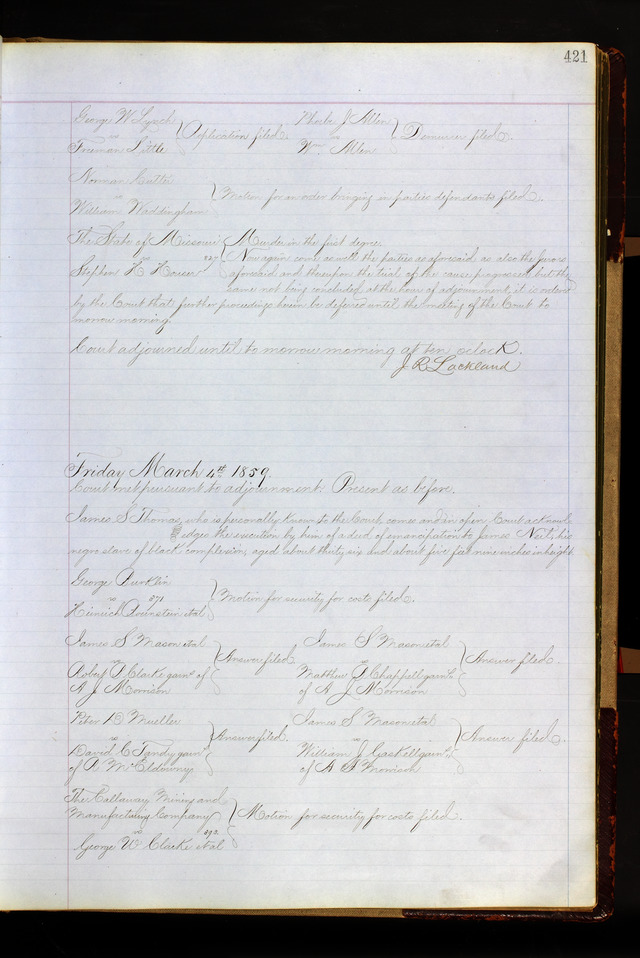 421
George W Lynch } Application filed. Phebe J Allen } Demurrer filed.
vs vs
Freeman Little Wm Allen
Norman Cutter
vs } Motion for an order bringing in parties defendants filed.
William Waddingham
The State of Missouri } Murder in the first degree.
vs Now again come as well the parties as aforesaid as also the jurors
Stephen H aforesaid and thereupon the trial of the cause progresses but the
same not being concluded at the hour of adjournment, it is ordered
by the Court that further proceedings herein be deferred until the meeting of the Court to
morrow morning.
Court adjourned until to morrow morning at ten oclock.
J R Lackland
Friday March 4th 1859.
Court met pursuant to adjournment. Present as before.
James S Thomas, who is personally known to the Court, comes and in open Court acknowl
edges the execution by him of a deed of emancipation to James his
negro slave of black complexion, aged about thirty six and about five feet nine inches in height.
George
vs 871 } Motion for security for costs filed.
Heinrich et al
James S Mason et al } Answer filed. James S Mason et al } Answer filed.
vs vs
Robert D Clarke garn. of Matthew D Chappell garn.
A J Morrison of A J Morrison
Peter B Mueller } Answer filed. James S Mason et al } Answer filed.
vs vs
David C Tandy garn. William J Gaskell garn.
of A McEldowny of A J Morrison
The Callaway Mining and
Manufacturing Company } Motion for security for costs filed.
vs 892
George W Clarke et al